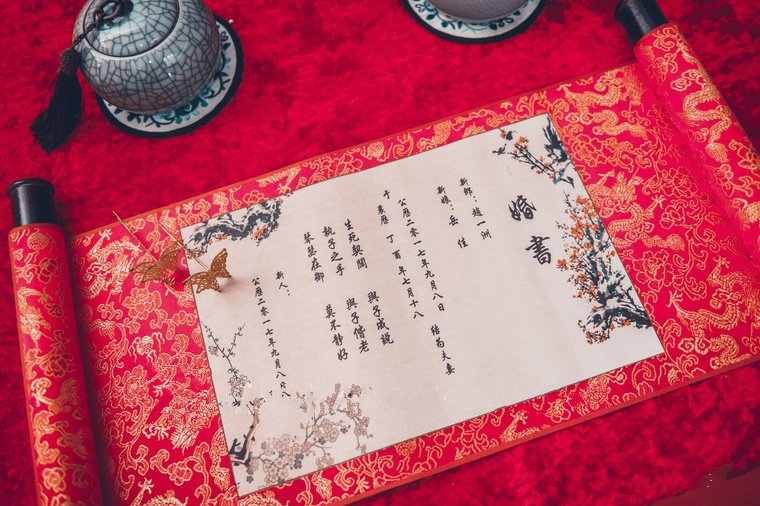 婚書
新郎：趙一洲
新娘：岳佳
公曆二零一七年九月八日 結為夫妻
于農曆 丁酉年七月十八
生死契闊 與子成說
執子之手 與子偕老
琴瑟在御 莫不靜好
新人：
公曆二零一七年九月八日